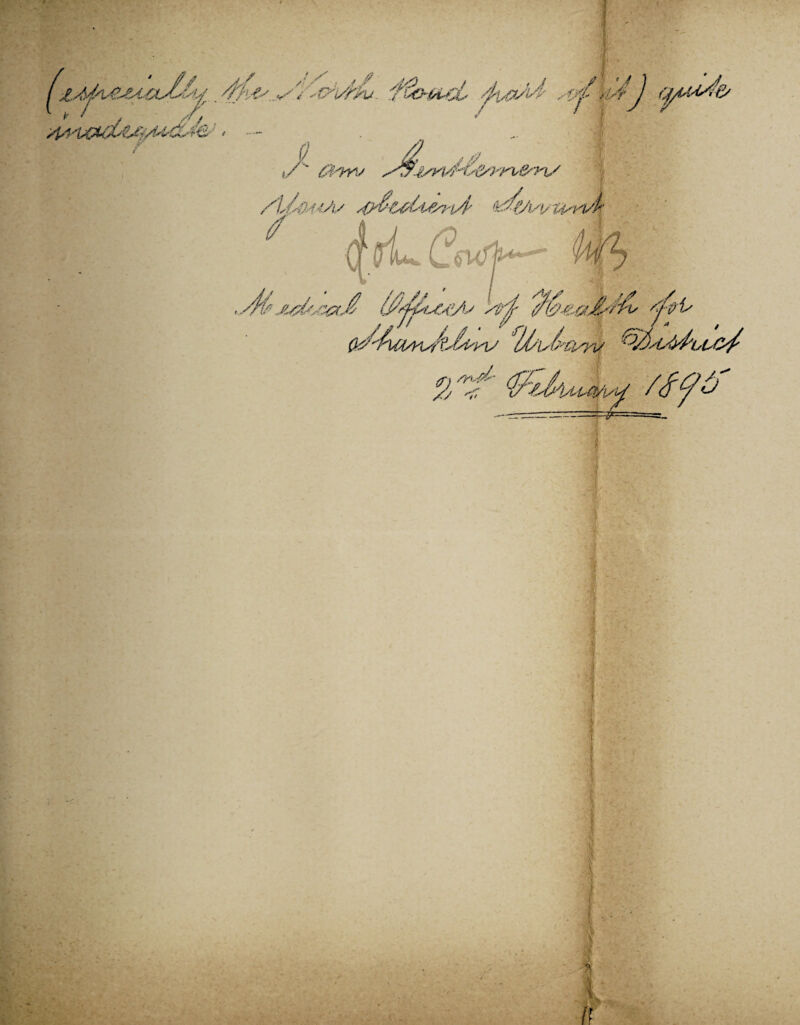 (especially the North Road part of it) quite
inadequate. —
I am Gentlemen
Your obedient Servant
John Cowper MB
Medical Officer of Health for
Shanklin Urban District
2nd February 1895